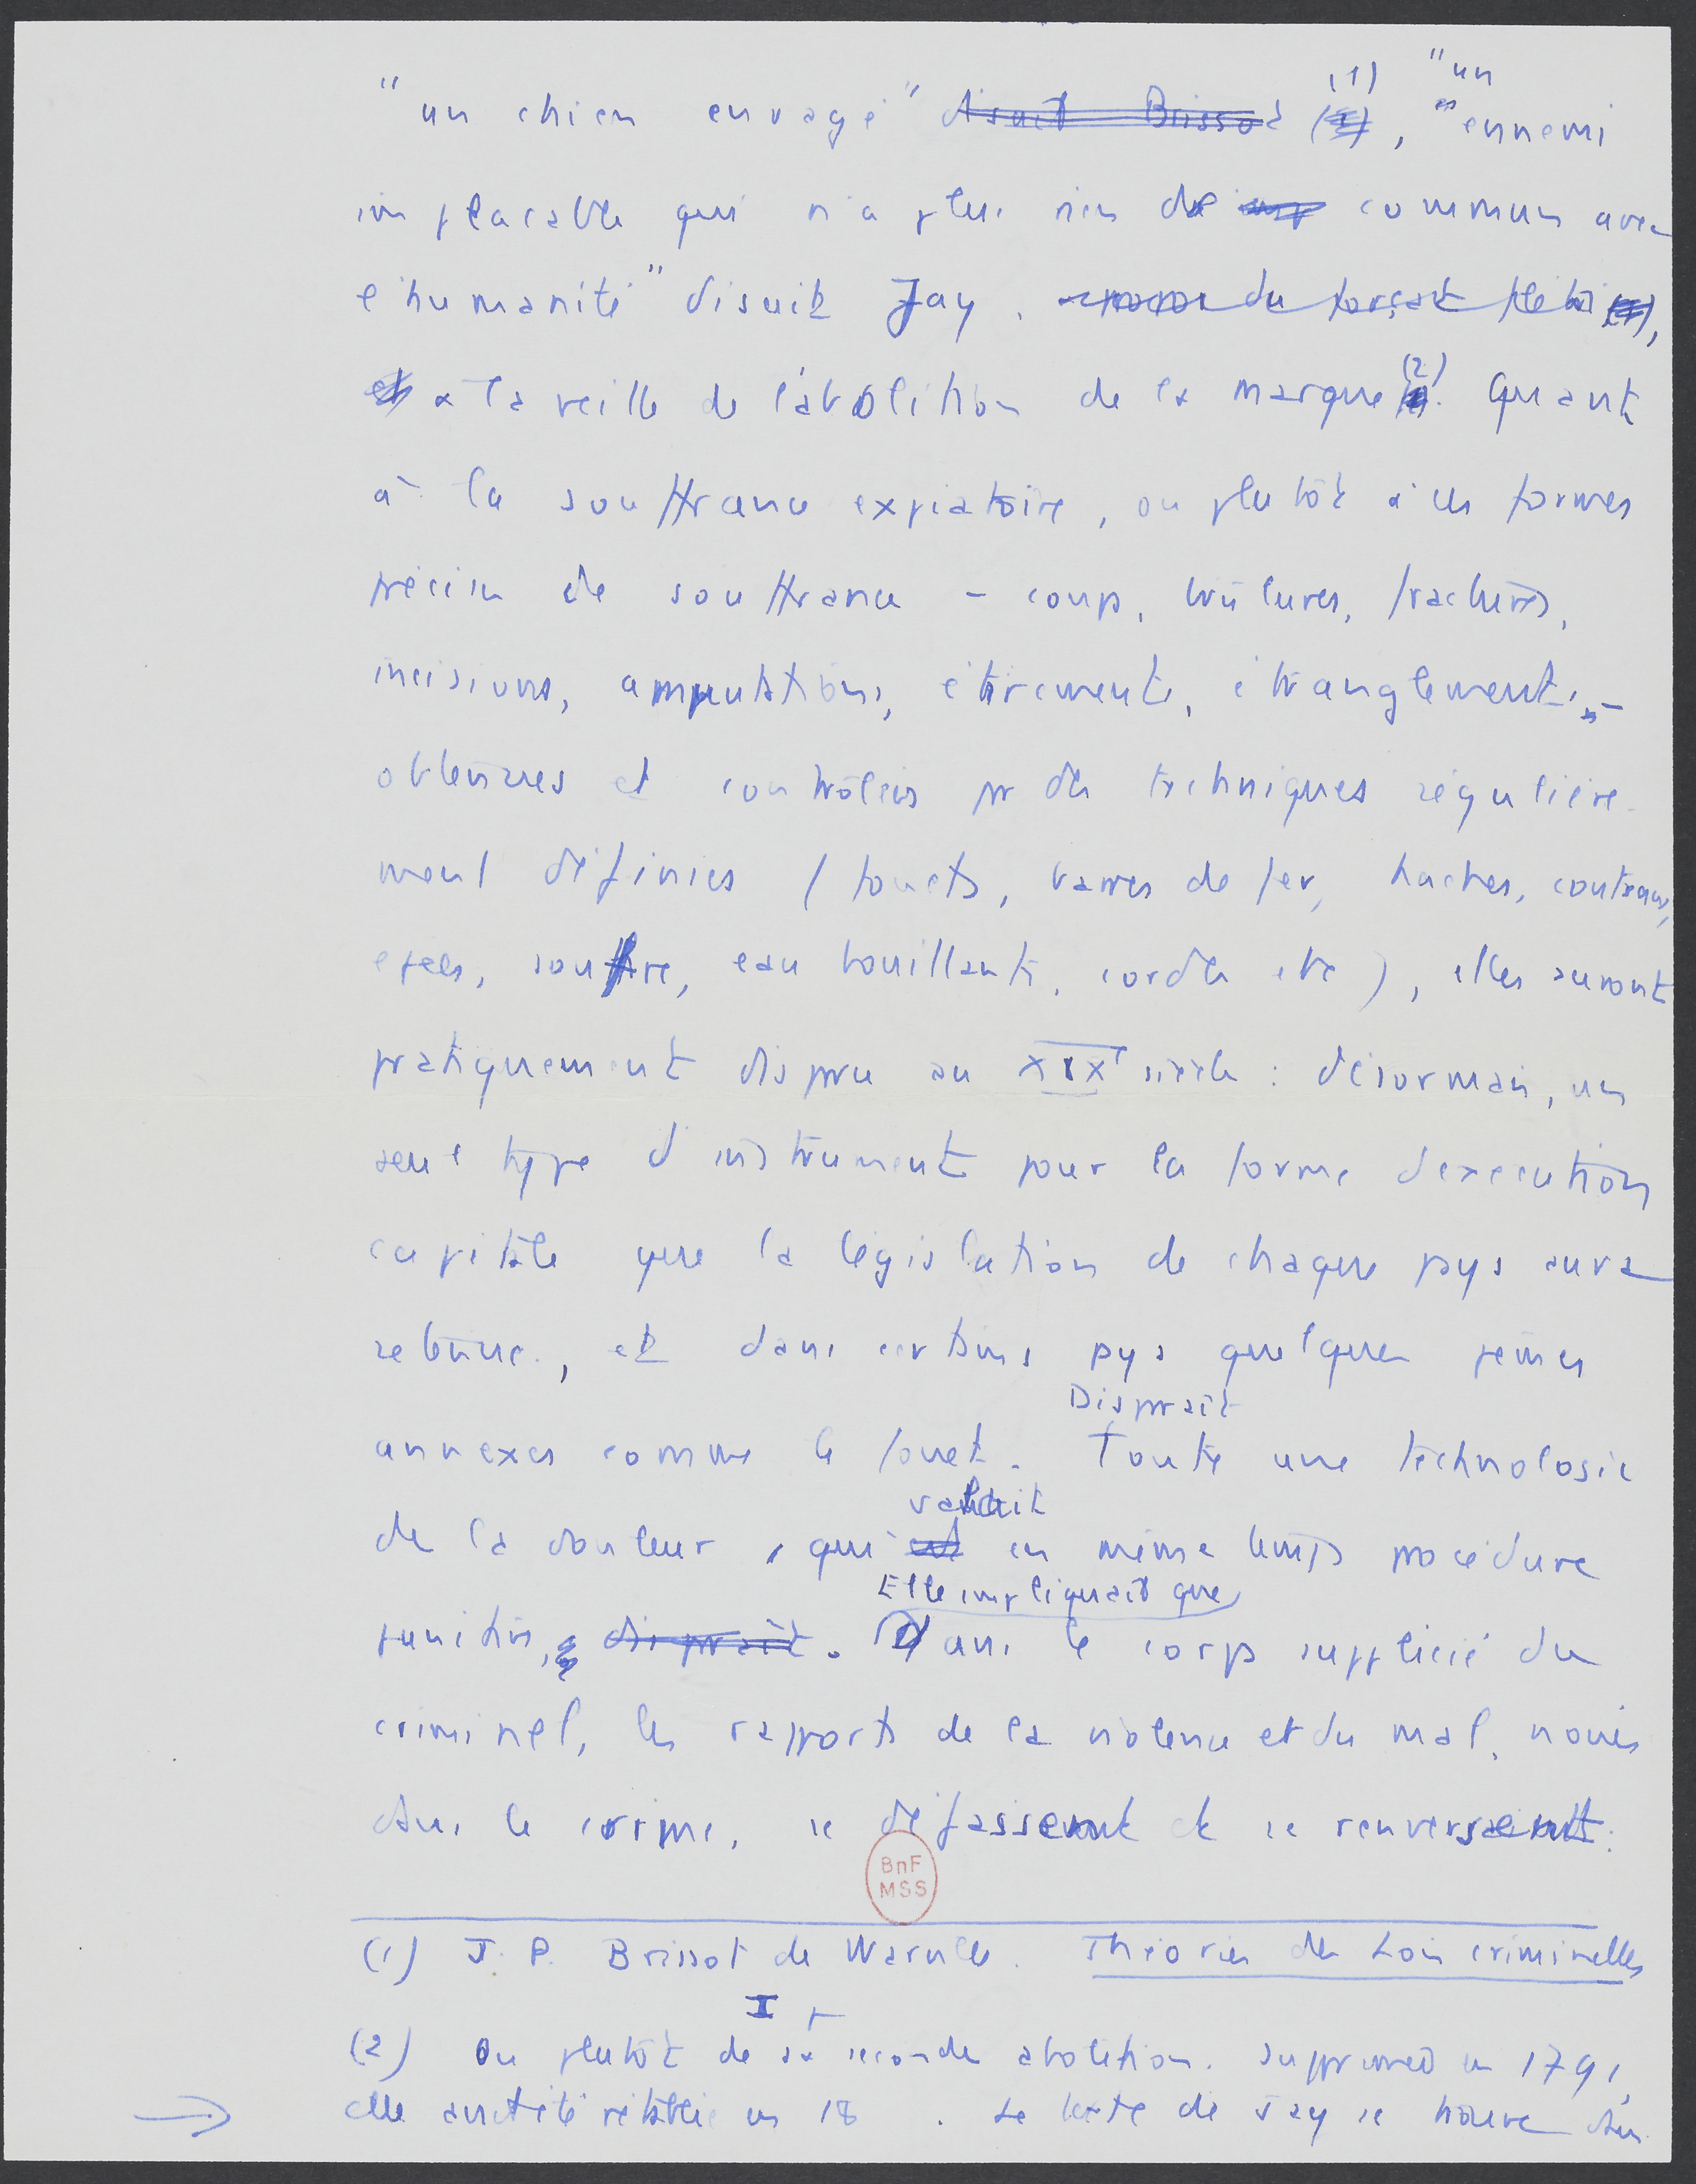 "un chien enragé" disait Brissot (1) (1), "un ennemi
implacable qui n'a plus rien de commun avec
l'humanité" disait Jay. à propos du forçat
et à la veille de l'abolition de la marque (2). Quant
à la souffrance expiatoire, ou plutôt à ces formes
précises de souffrance – coups, brûlures, fractures,
incisions, amputations, étirements, étranglements, –
obtenues et contrôlées pr des techniques régulière-
ment définies (fouets, barres de fer, haches, couteaux,
soufre, eau bouillante, cordes etc), elles auront
pratiquement dispru au XIXe siècle : désormais, un
seul type d'instrument pour la forme d'exécution
capitale que la législation de chaque pays aura
retenue, et dans certains pys quelques peines
Disprait
annexes comme le fouet. Toute une technologie
valait
de la douleur, qui est en même temps procédure
Elle impliquait que
punitive, disprait. Dans le corps supplicié du
criminel, les rapports de la violence et du mal, noués
dans le crime, se défassent et se renversent.
BnF
MSS
(1) J. P. Brissot de Warville. Théories des Lois criminelles
I p
(2) Ou plutôt de sa seconde abolition. Supprimée en 1791,
elle avait été rétablie en 18 . Le texte de Jay se trouve dans